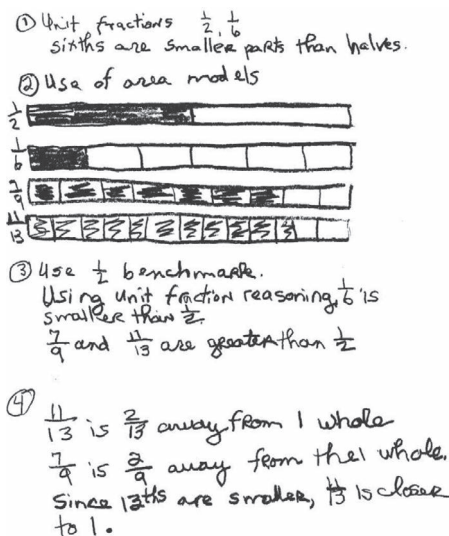 ① Unit fractions 1/2, 1/6
sixths are smaller parts than halves.
② Use of area models
1/2
1/6
7/9
11/13
③ Use 1/2 benchmark.
Using unit fraction reasoning, 1/6 is
smaller than 1/2.
7/9 and 11/13 are greater than 1/2
④
11/13 is 2/13 away from 1 whole
7/9 is 2/9 away from the 1 whole.
Since 13ths are smaller, 11/13 is closer
to 1.